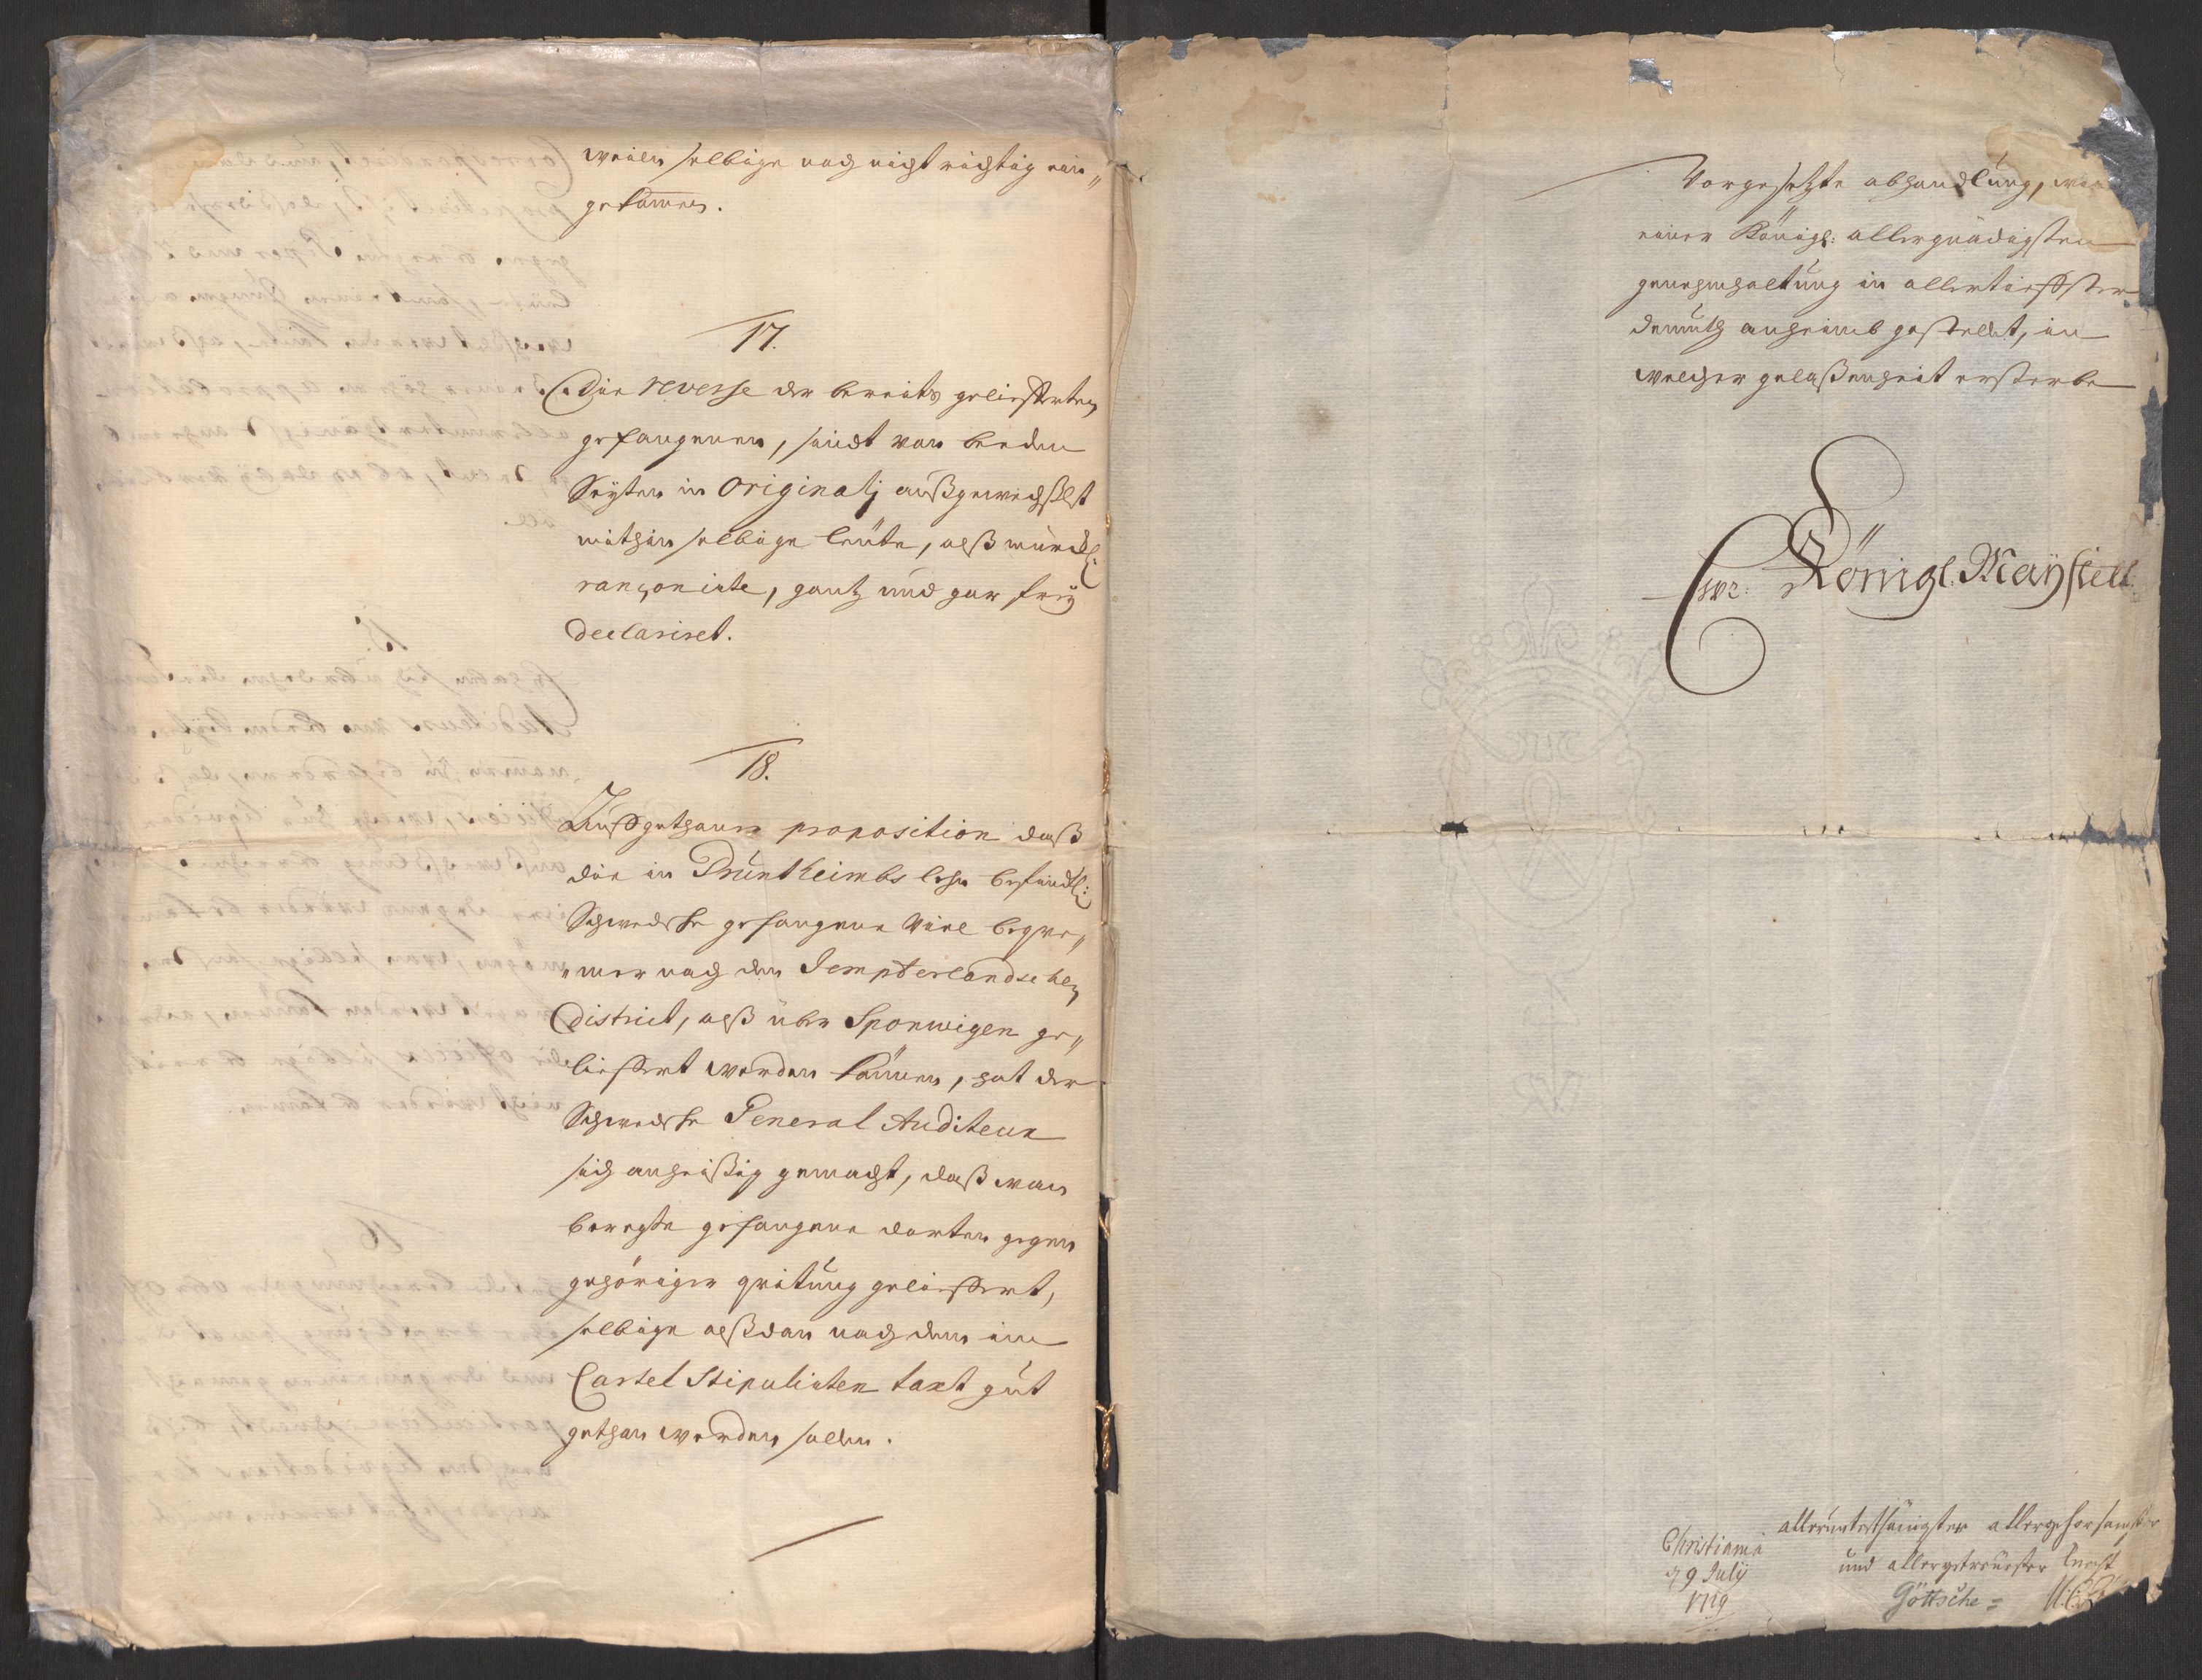 weilen selbige noch nicht richtig ein„
gekommen.
17.
Die reverse der bereits gelieferten
gefangenen, sindt von beeden
Seyten in Originalj außgewechßelt
mithin selbige leüte, alß würckl:
rançonirte, gantz und gar frey
declariret.
18.
Auff gethane proposition daß
die in Druntheimbs lehn befindl:
Schwedsche gefangene viel beqve„
„mer nach den Jempterlandschen
District, alß über Sponwigen ge„
liefert werden können, hat der
Schwedsche General Auditeur
sich anheischig gemacht, daß wan
beregte gefangene dorten gegen
gehöriger qvitung geliefert,
selbige alßdan nach dem im
Cartel Stipulirten taxt gut
gethan werden sollen.
Vorgesetzte abhandlung,
einer Königl: allergnädigsten
genehmhaltung in allertiefster
demuth anheimb gestellt, in
welcher gelaßenheit ersterbe
Ewr: Königl. Maystett.
allerunterthänigster allergehorsambster
und allergetreuester knecht
Göttsche =
Christiania
d 9 Julij
1719